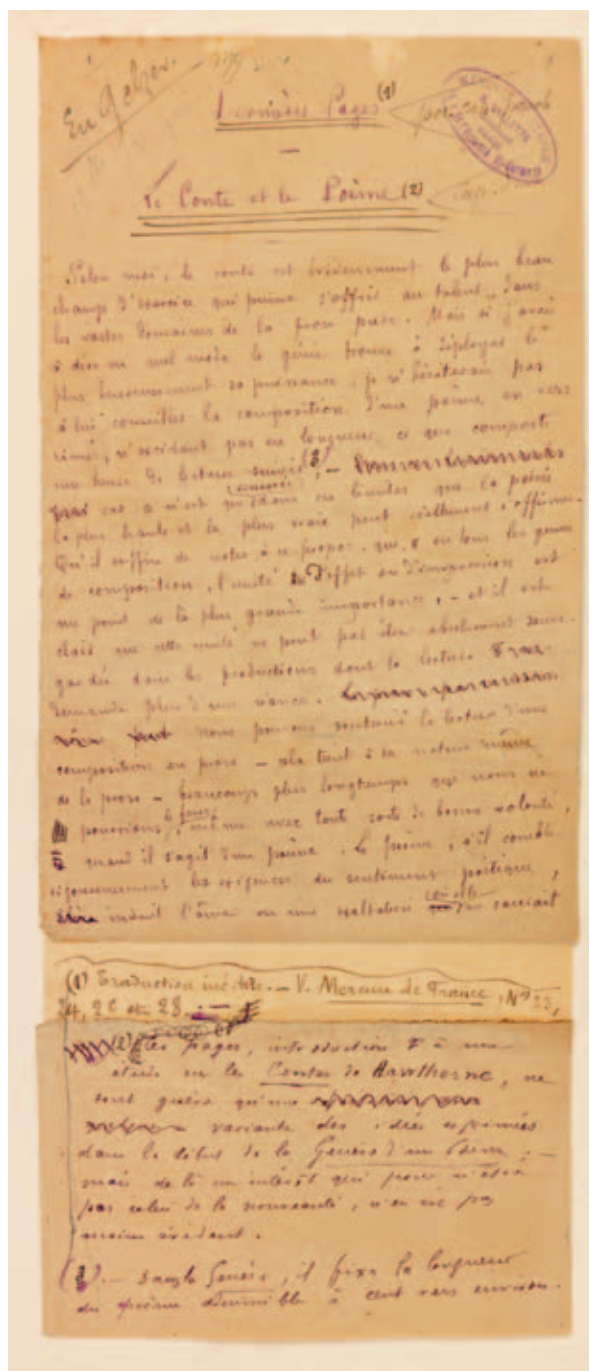 En Gelzer.
Dernières Pages (1)
Le Conte et le Poème (2)
Selon moi, le conte est évidemment le plus beau
champ d'exercice qui puisse s'offrir au talent, dans
les vastes domaines de la prose pure. Mais si j'avais
à dire en quel mode le génie trouve à déployer le
plus heureusement sa puissance, je n'hésiterais pas
à lui conseiller la composition d'un poème en vers
rimés, n'excédant pas en longueur ce que comporte
une heure de lecture (3) –
car ce n'est que dans ces limites que la poésie
la plus haute et la plus vraie peut réellement s'affirmer.
Qu'il suffise de noter, à ce propos, que, en tous les genres
de composition, l'unité d'effet ou d'impression est
un point de la plus grande importance, – et il est
clair que cette unité ne peut pas être absolument sauve-
gardée dans les productions dont la lecture
demande plus d'une séance.
nous pouvons soutenir la lecture d'une
composition en prose – cela tient à la nature même
de la prose – beaucoup plus longtemps que nous ne
pourrions le faire, même avec toute sorte de bonne volonté,
quand il s'agit d'un poème. Le poème, s'il comble
rigoureusement les exigences du sentiment poétique,
induit l'âme en une exaltation qui ne saurait
(1) Traduction inédite. – V. Mercure de France, Nos 23,
24, 26 et 28. –
(2) Ces pages, introduction à une
étude sur les Contes de Hawthorne, ne
sont guère qu'une
variante des idées exprimées
dans le début de la Genèse d'un Poème ; –
mais de là un intérêt qui pour n'être
pas celui de la nouveauté, n'en est pas
moins évident.
(3). – Dans la Genèse, il fixe la longueur
du poème admissible à cent vers environ.